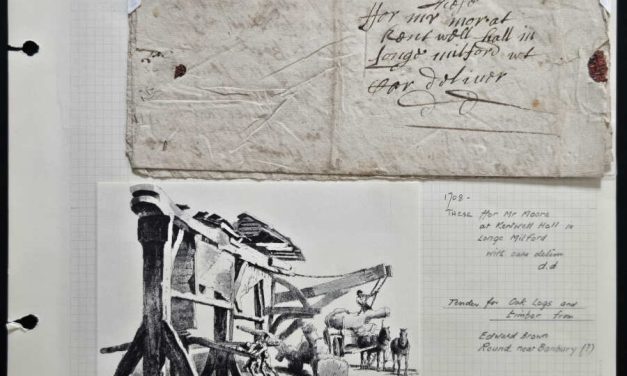 These
ffor mr mor at
Kent well hall in
Longe milford wt
Car deliver
1708 -
THESE ffor Mr Moore
at Kentwell Hall in
Longe Milford
with care deliver
d.d
Tender for Oak Logs and
timber from
Edward Brown
Round near Banbury (?)